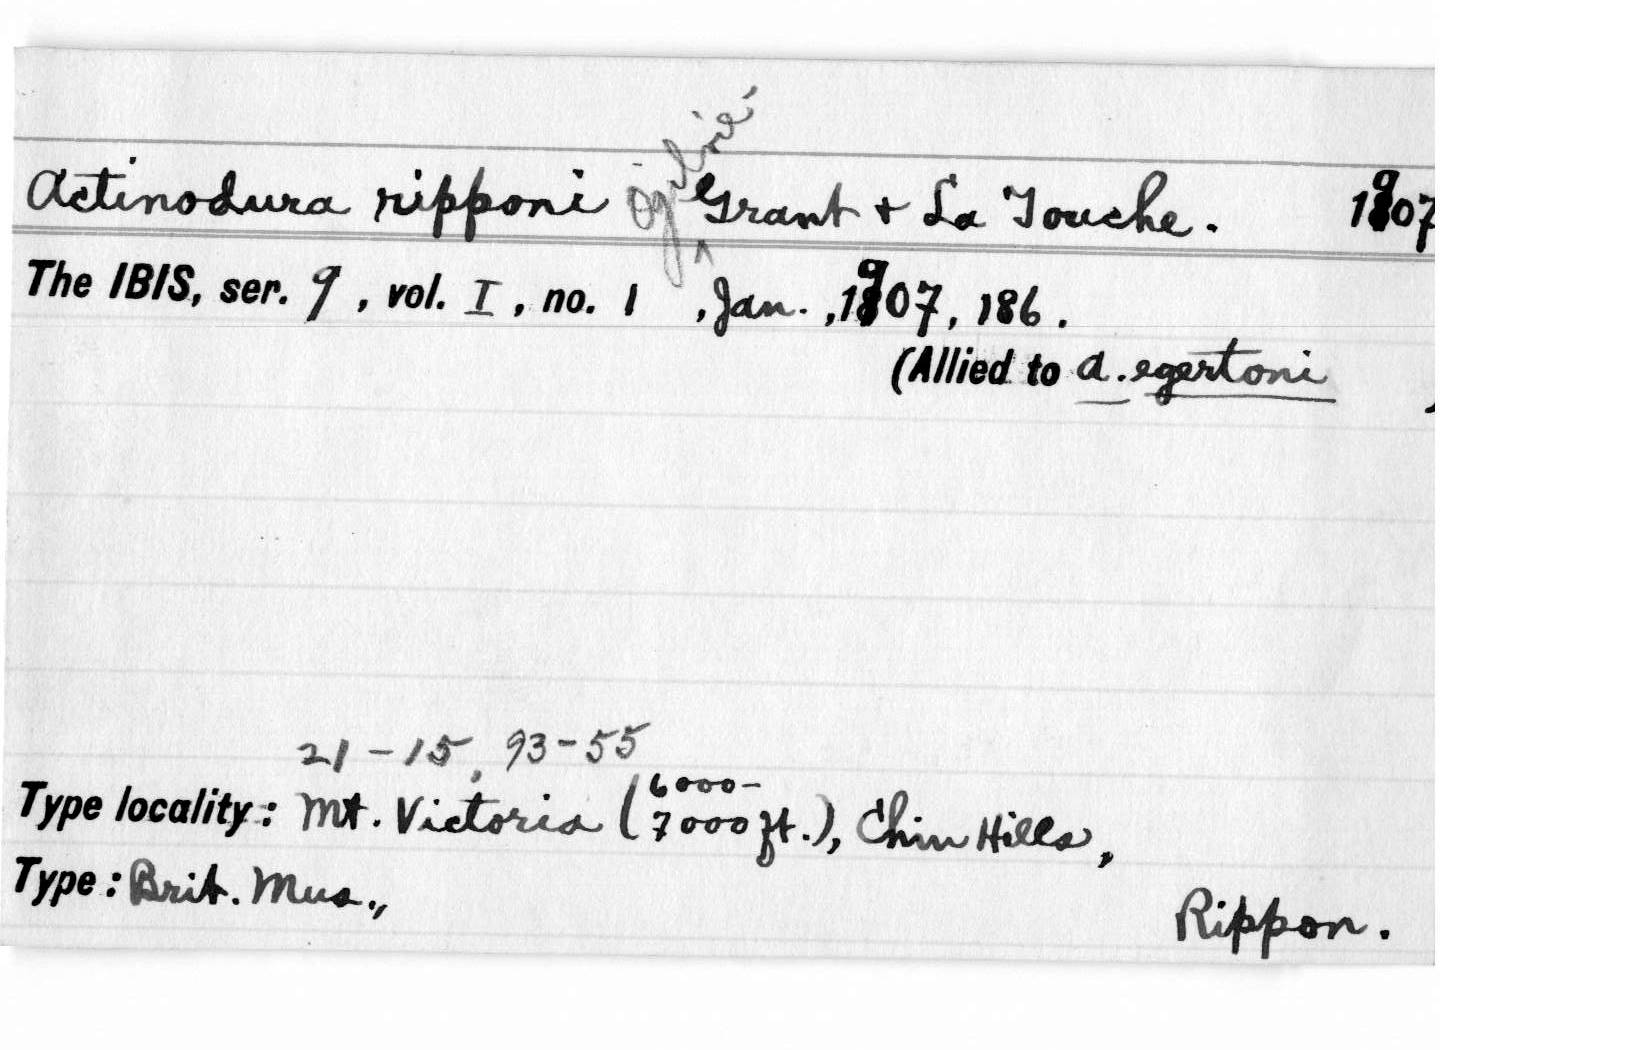 Actinodura ripponi Ogilvie-Grant + La Touche. 1907
The IBIS, ser. 9, vol. I, no. 1, Jan., 1907, 186.
(Allied to A. egertoni )
21-15, 93-55
Type locality: Mt. Victoria (6000-7000 ft.), Chin Hills,
Type: Brit. Mus.,
Rippon.